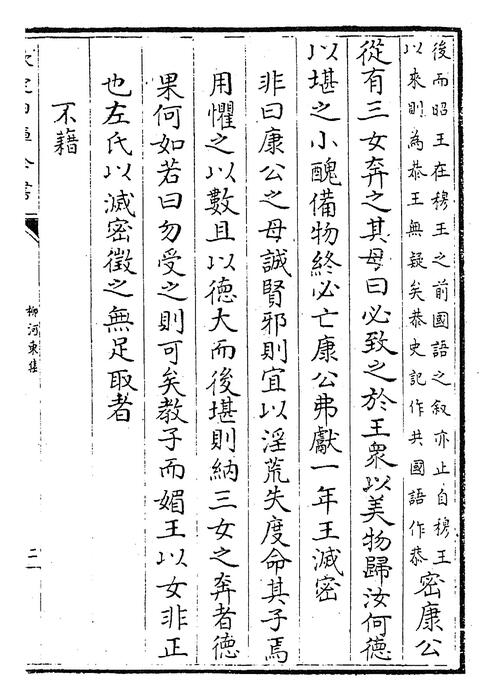 後而昭王在穆王之前國語之叙亦止自穆王
以來則為恭王無疑矣恭史記作共國語作恭
密康公
從有三女奔之其母曰必致之於王衆以美物歸汝何德
以堪之小醜備物終必亡康公弗獻一年王滅密
非曰康公之母誠賢邪則宜以淫荒失度命其子焉
用懼之以數且以德大而後堪則納三女之奔者德
果何如若曰勿受之則可矣教子而媚王以女非正
也左氏以滅密徵之無足取者
不藉
柳河東集